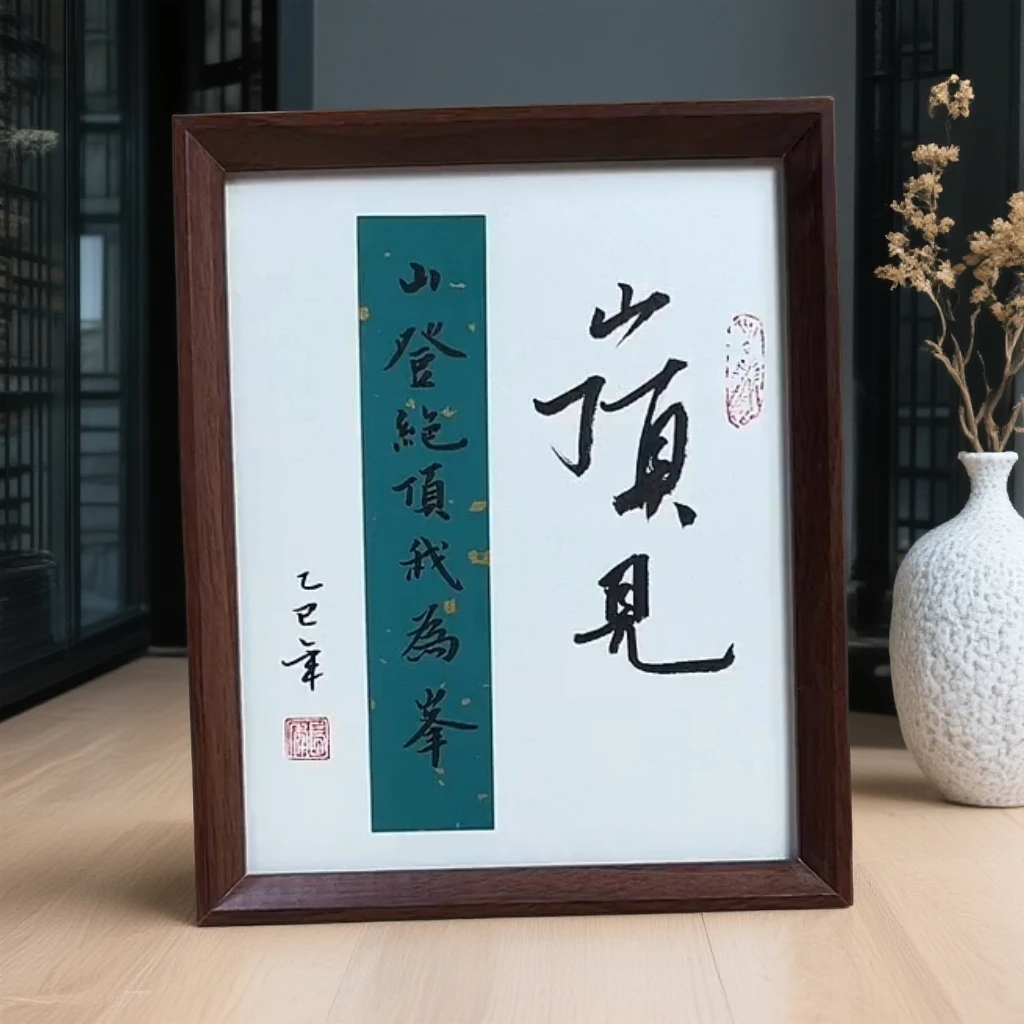 山頂見
山登絶頂我為峯
乙巳年